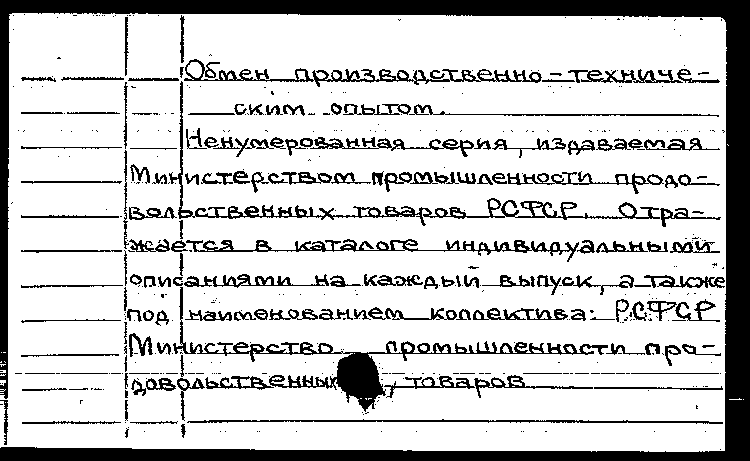 Обмен производственно-техниче-
ским опытом.
Ненумерованная серия, издаваемая
Министерством промышленности продо-
вольственных товаров РСФСР. Отра-
жается в каталоге индивидуальными
описаниями на каждый выпуск, а также
под наименованием коллектива: РСФСР
Министерство промышленности про-
довольственных, товаров